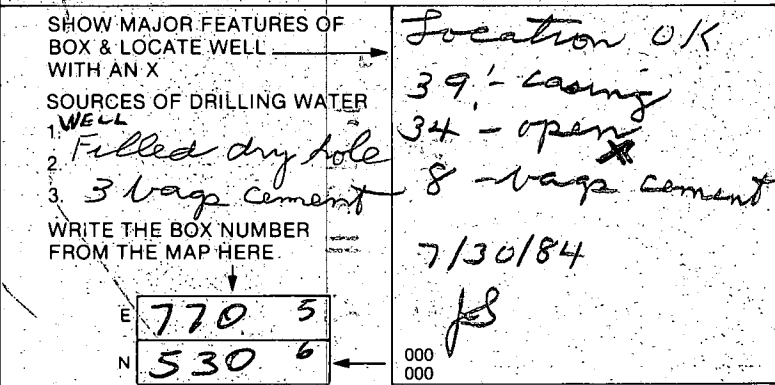 SHOW MAJOR FEATURES OF
BOX & LOCATE WELL
WITH AN X
SOURCES OF DRILLING WATER
1. WELL
2. Filled dry hole
3. 3 bags cement
WRITE THE BOX NUMBER
FROM THE MAP HERE
E 770 5
N 530 6
Location OK
39' - casing
34 - open
X
8 - bags cement
7/30/84
JS
000
000